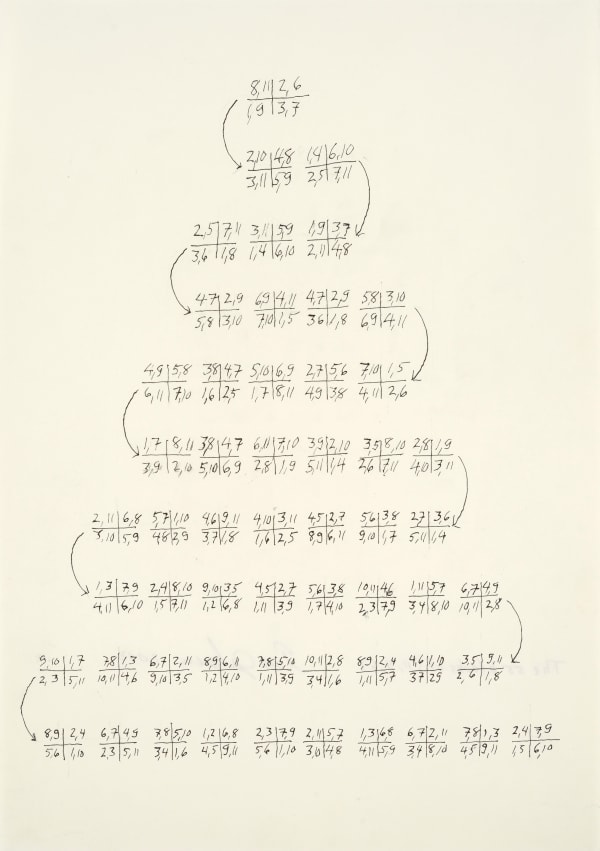 8,11 2,6
1,9 3,7
2,10 4,8 1,4 6,10
3,11 5,9 2,5 7,11
2,5 7,11 3,11 5,9 1,9 3,7
3,6 1,8 1,4 6,10 2,11 4,8
4,7 2,9 6,9 4,11 4,7 2,9 5,8 3,10
5,8 3,10 7,10 1,5 3,6 1,8 6,9 4,11
4,9 5,8 3,8 4,7 5,10 6,9 2,7 5,6 7,10 1,5
6,11 7,10 1,6 2,5 1,7 8,11 4,9 3,8 4,11 2,6
1,7 8,11 3,8 4,7 6,11 7,10 3,9 2,10 3,5 8,10 2,8 1,9
3,9 2,10 5,10 6,9 2,8 1,9 5,11 1,4 2,6 7,11 4,10 3,11
2,11 6,8 5,7 1,10 4,6 9,11 4,10 3,11 4,5 2,7 5,6 3,8 2,7 3,6
3,10 5,9 4,8 2,9 3,7 1,8 1,6 2,5 8,9 6,11 9,10 1,7 5,11 1,4
1,3 7,9 2,4 8,10 9,10 3,5 4,5 2,7 5,6 3,8 10,11 4,6 1,11 5,7 6,7 4,9
4,11 6,10 1,5 7,11 1,2 6,8 1,11 3,9 1,7 4,10 2,3 7,9 3,4 8,10 10,11 2,8
9,10 1,7 7,8 1,3 6,7 2,11 8,9 6,11 7,8 5,10 10,11 2,8 8,9 2,4 4,6 1,10 3,5 9,11
2,3 5,11 10,11 4,6 9,10 3,5 1,2 4,10 1,11 3,9 3,4 1,6 1,11 5,7 3,7 2,9 2,6 1,8
8,9 2,4 6,7 4,9 7,8 5,10 1,2 6,8 2,3 7,9 2,11 5,7 1,3 6,8 6,7 2,11 7,8 1,3 2,4 7,9
5,6 1,10 2,3 5,11 3,4 1,6 4,5 9,11 5,6 1,10 3,10 4,8 4,11 5,9 3,4 8,10 4,5 9,11 1,5 6,10